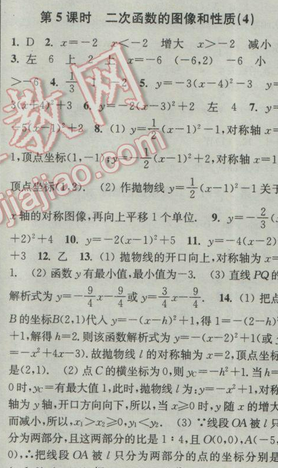 第5课时 二次函数的图像和性质(4)
1. D 2. x=-2 x<-2 增大 x>-2 减小
3. 左 6 上 2 上 x=-6 (-6,2) -6 小
5. y=-2(x-3)²+2 左 4 7. y=
-5(x-1)²+2 8. (1) y=1/2(x-1)²-1,对称轴x=
1,顶点坐标(1,-1) y=1/2(x-1)²+2,对称轴x=1
顶点坐标(1,2). (2) 作抛物线y=1/2(x-1)²-1关于
x轴的对称图像,再向上平移1个单位. 9. y=-2/3(x
+2)²+4 10. y=-2(x-1)²+5 11. y=-4(x-2)²
+3 12. 乙 13. (1) 抛物线的开口向上,对称轴为x=
1. (2) 函数y有最小值,最小值为-3. (3) 直线PQ的
解析式为y=-9/4x-9/4或y=3/4x-9/4. 14. (1) 把点
B的坐标B(2,1)代入y=-(x-h)²+1,得1=-(2-h)²
+1,解得h=2.则该函数解析式为y=-(x-2)²+1(或y
=-x²+4x-3).故抛物线l的对称轴为x=2,顶点坐标
是(2,1). (2) 点C的横坐标为0,则yc=-h²+1.当h=
0时,yc=有最大值1,此时,抛物线为:y=-x²+1,对称
轴为y轴,开口方向向下,所以,当x≥0时,y随x的增大
而减小,所以,x₁>x₂≥0,y₁<y₂. (3) ∵线段OA被l只
分为两部分,且这两部分的比是1∶4,且O(0,0),A(-5,
0),∴把线段OA被l只分为两部分的点的坐标分别是